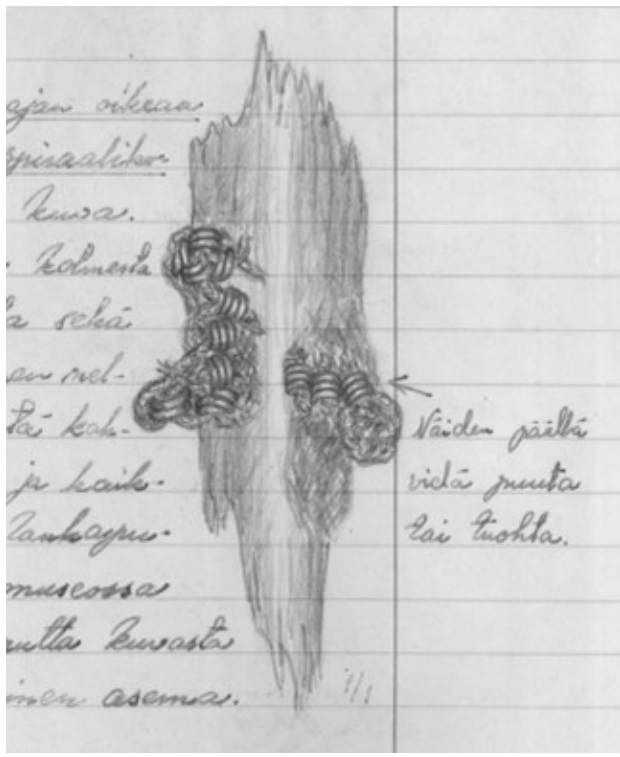 ajan oikeaa
spiraaliko-
kuva.
kolmesta
la sekä
en nel-
tä kah-
ja kaik-
museossa
kuvasta
inen asema.
1/1
Näiden päällä
vielä puuta
tai tuohta.